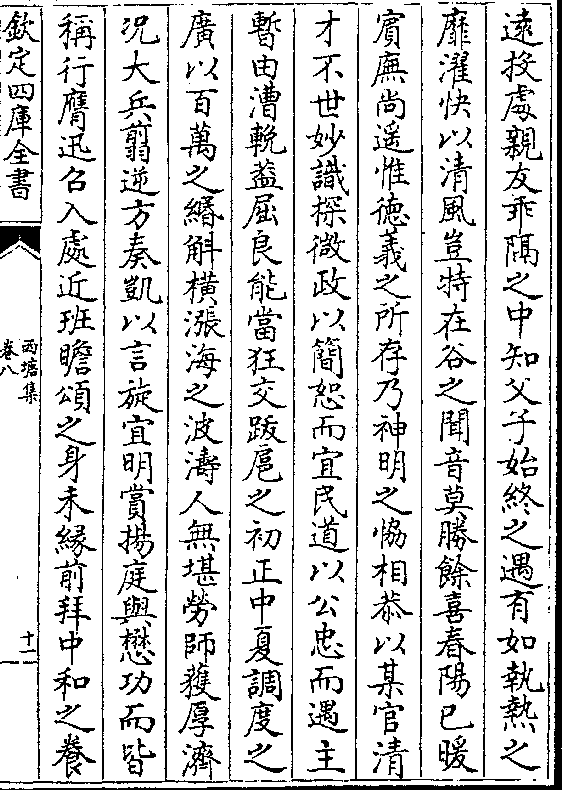 遠投處親友乖隔之中知父子始終之遇有如執熱之
靡濯快以清風豈特在谷之聞音莫勝餘喜春陽已暖
賓廡尚遥惟徳義之所存乃神明之恊相恭以某官清
才不世妙識探微政以簡恕而宜民道以公忠而遇主
暫由漕輓葢屈良能當狂交跋扈之初正中夏調度之
廣以百萬之緡斛横漲海之波濤人無堪勞師獲厚濟
况大兵翦逆方奏凱以言旋宜明賞揚庭與懋功而皆
稱行膺迅召入處近班瞻頌之身未縁前拜中和之養
欽定四庫全書
西塘集
卷八
十一